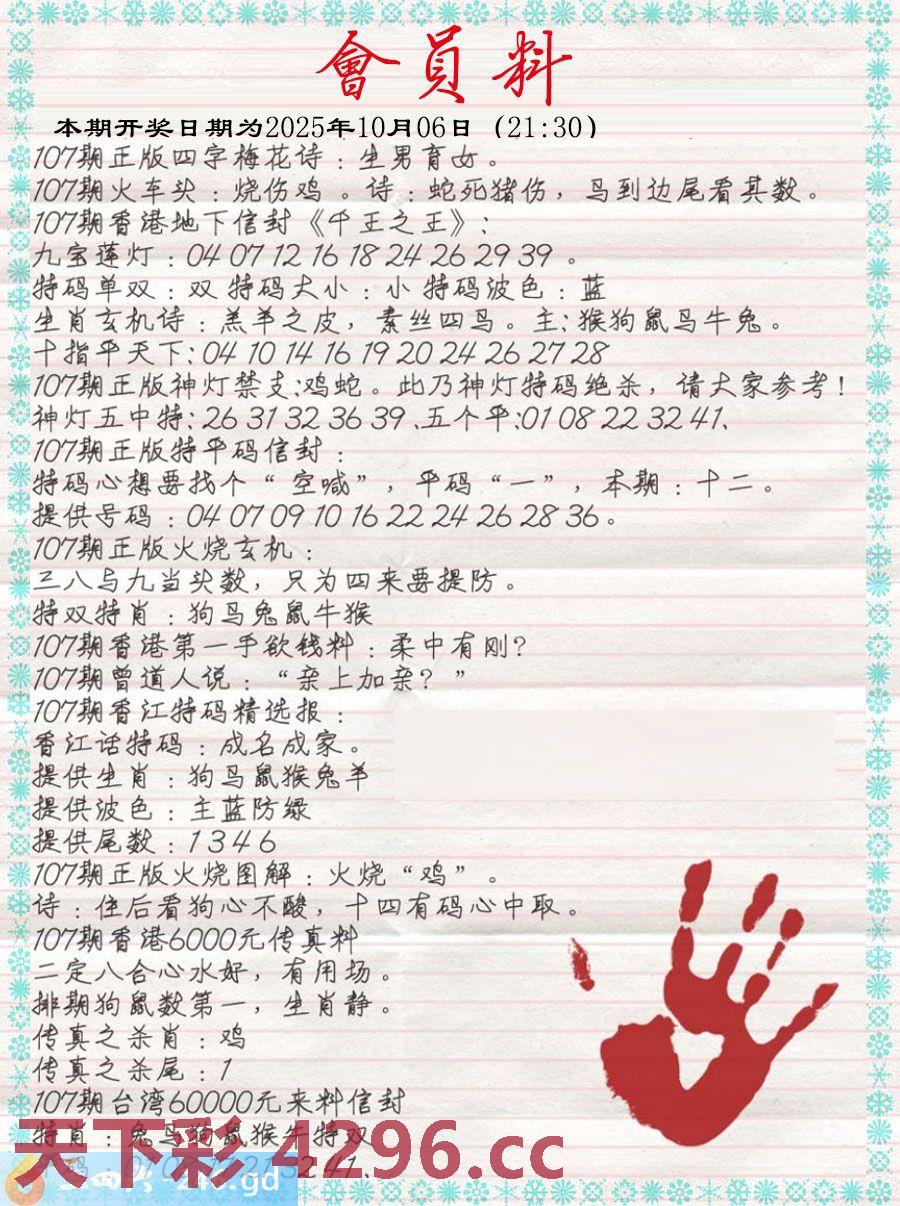 會員料
本期开奖日期为2025年10月06日（21:30）
107期正版四字梅花诗：生男育女。
107期火车头：烧伤鸡 。诗：蛇死猪伤，鸟到边尾看其数。
107期香港地下信封《千王之王》：
九宝莲灯：04 07 12 16 18 24 26 29 39 。
特码单双：双 特码大小：小 特码波色：蓝
生肖玄机诗：羔羊之皮，素丝四鸟。主：猴狗鼠鸟牛兔。
十指平天下：04 10 14 16 19 20 24 26 27 28
107期正版神灯禁支：鸡蛇。此乃神灯特码绝杀，请大家参考！
神灯五中特：26 31 32 36 39 、五个平：01 08 22 32 41、
107期正版特平码信封：
特码心想要找个“ 空喊”，平码“一”，本期：十二。
提供号码：04 07 09 10 16 22 24 26 28 36。
107期正版火烧玄机：
三八与九当头数，只为四来要提防。
特双特肖：狗鸟兔鼠牛猴
107期香港第一手欲钱料：柔中有刚？
107期曾道人说：“亲上加亲？”
107期香江特码精选报：
香江话特码：成名成家。
提供生肖：狗鸟鼠猴兔羊
提供波色：主蓝防绿
提供尾数：1 3 4 6
107期正版火烧图解：火烧“鸡”。
诗：住后看狗心不酸，十四有码心中取。
107期香港6000元传真料
二定八合心水好，有用场。
排期狗鼠数第一，生肖静。
传真之杀肖：鸡
传真之杀尾：1
107期台湾60000元来料信封
特肖：兔鸟狗鼠猴牛特双
天下彩 4296.cc
41、
.gd